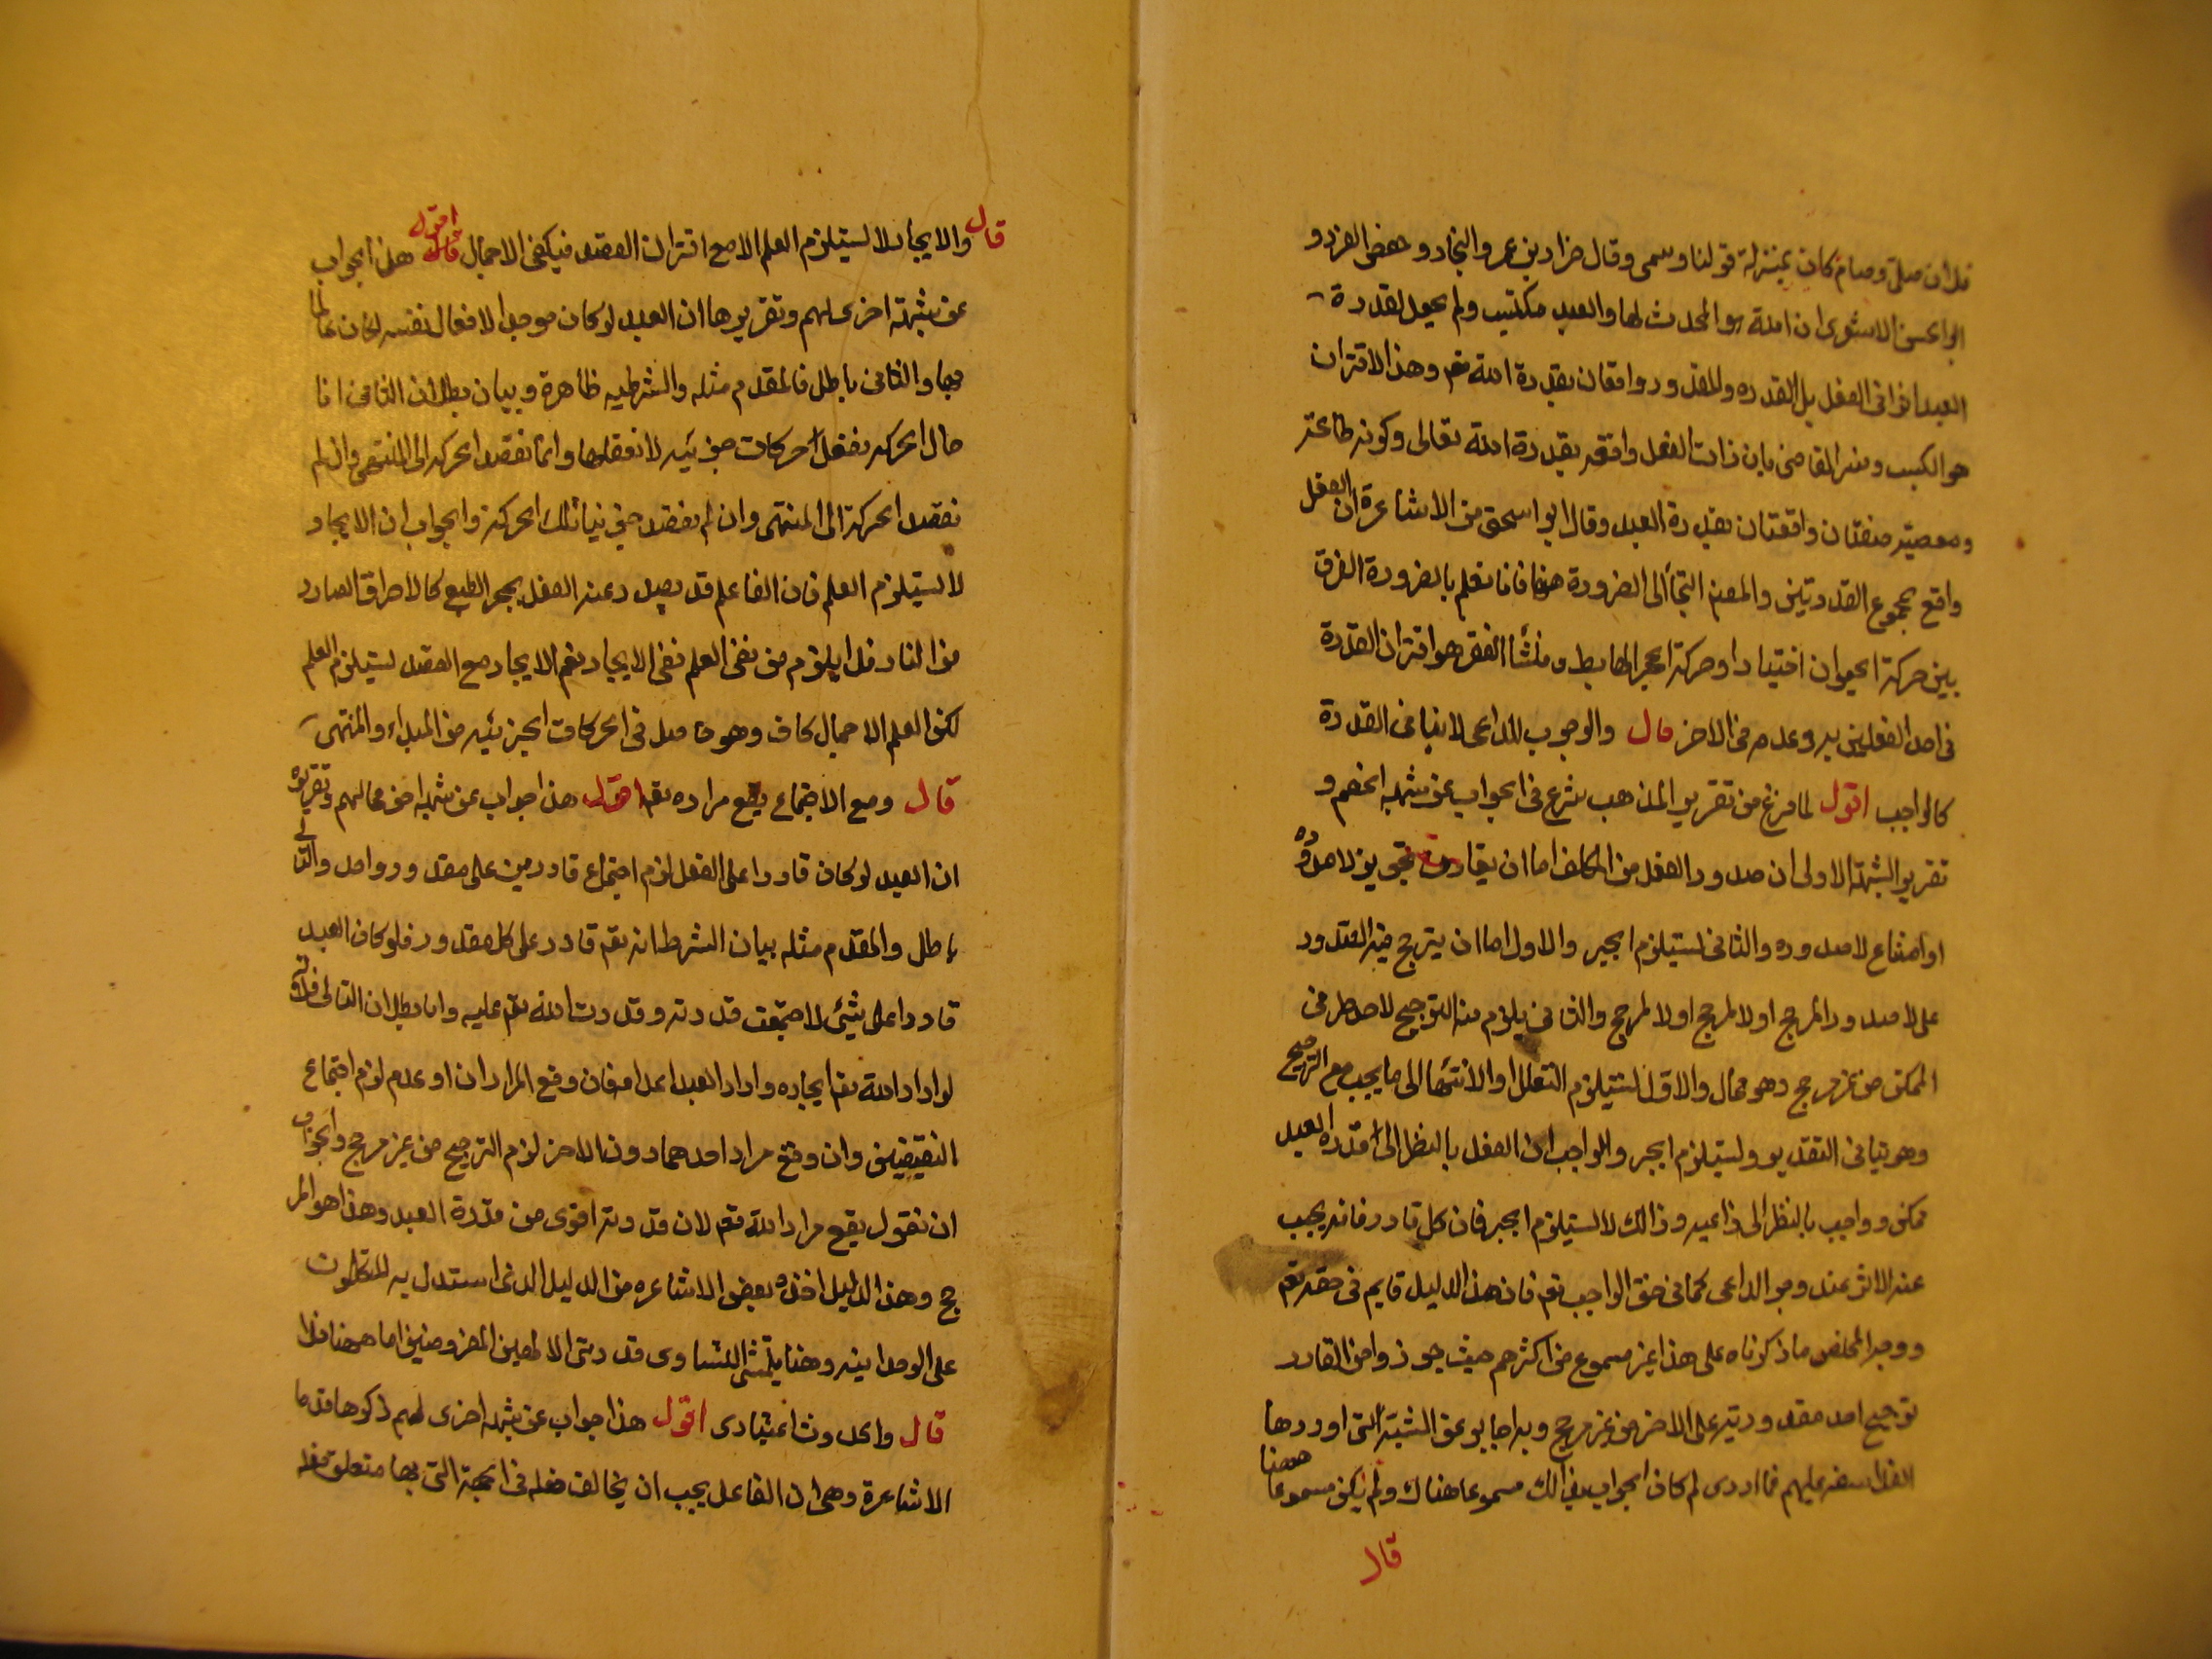 فلان صلى وصام كان بمنزلة قولنا وسمى وقال ضرار بن عمرو والنجار وحفص الفرد و
ابو الحسن الاشعرى ان الله هو المحدث لها والعبد مكتسب ولم يجعل لقدرة
العبد اثرا فى الفعل بل القدره والمقدور واقعان بقدرة الله تعه وهذا الاقتران
هو الكسب وفسر القاضى بان ذات الفعل واقعه بقدرة الله تعالى وكونه طاعته
ومعصيته صفتان واقعتان بقدرة العبد وقال ابو اسحق من الاشاعرة ان الفعل
واقع بمجموع القدرتين والمصنف التجأ الى الضرورة هنا فانا نعلم بالضرورة الفرق
بين حركة الحيوان اختيارا وحركة الحجر الهابط ومنشأ الفرق هو اقتران القدرة
فى احد الفعلين به وعدمه فى الاخر قال والوجوب للداعى لا ينافى القدرة
كالواجب اقول لما فرغ من تقرير المذهب شرع فى الجواب عن شبه الخصم و
تقرير الشبهة الاولى ان صدور الفعل من المكلف اما ان يقارن تجويز لا صدوره
او امتناع لا صدوره والثانى يستلزم الجبر والاول اما ان يترجح فيه الصدور
على لا صدور المرجح او لا لمرجح او لا لمرجح والثانى يلزم منه الترجيح لاحد طرفى
الممكن من غير مرجح وهو محال والاول يستلزم التسلسل او الانتهاء الى ما يجب مع الترجيح
وهو ينافى التقدير ويستلزم الجبر والواجب ان الفعل بالنظر الى قدره العبد
ممكن وواجب بالنظر الى داعيه وذالك لا يستلزم الجبر فان كل قادر فانه يجب
عنه الاثر عند وجود الداعى كما فى حق الواجب تعه فان هذا الدليل قايم فى حقه تعه
ووجه المخلص ما ذكرناه على هذا غير مسموع من اكثرهم حيث جوزوا من القادر
ترجيح احد مقدوريه على الاخر من غير مرجح وبه اجابوا عن الشبهة التى اوردها
الفلاسفه عليهم فما ادرى لم كان الجواب بذالك مسموعا هناك ولم يكن مسموعا ههنا
قال
قال والايجاد لا يستلزم العلم الا مع اقتران القصد فيكفى الاجمال اقول هذا الجواب
عن شبهة اخرى لهم وتقريرها ان العبد لو كان موجدا لافعال نفسه لكان عالما
بها والتالى باطل فالمقدم مثله والشرطيه ظاهرة وبيان بطلان التالى انا
حال الحركه نفعل حركات جزئيه لا نعقلها وانما نقصد الحركه الى المنتهى وان لم
نقصد الحركة الى المنتهى وان لم نقصد جزئيات تلك الحركة والجواب ان الايجاد
لا يستلزم العلم فان الفاعل قد يصدر عنه الفعل بمجرد الطبع كالاحراق الصادر
من النار فلا يلزم من نفى العلم نفى الايجاد نعم الايجاد مع القصد يستلزم العلم
لكن العلم الاجمال كاف وهو حاصل فى الحركات الجزئيه من المبداء والمنتهى
قال ومع الاجتماع يقع مراده تعه اقول هذا جواب عن شبه اخرى لهم وتقريره
ان العبد لو كان قادرا على الفعل لزم اجتماع قادرين على مقدور واحد والتالى
باطل والمقدم مثله بيان الشرط انه تعه قادر على كل مقدور فلو كان العبد
قادرا على شئى لاجتمعت قدرته وقدرت الله تعه عليه واما بطلان التالى فلانه
لو اراد الله تعه ايجاده واراد العبد اعدامه فان وقع المرادان او عدم لزم اجتماع
النقيضين وان وقع مراد احدهما دون الاخر لزم الترجيح من غير مرجح والجواب
ان نقول يقع مراد الله تعه لان قدرته اقوى من قدرة العبد وهذا هو المر
جح وهذا الدليل اخذه بعض الاشاعره من الدليل الذى استدل به المتكلمون
على الوحدانيه وهنا يتمشى لتساوى قدرتى الالهين المفروضين اما ههنا فلا
قال والحدوث اعتبارى اقول هذا جواب عن شبه اخرى لهم ذكرها قدما
الاشاعرة وهى ان الفاعل يجب ان يخالف فعله فى الجهة التى بها متعلق فعله